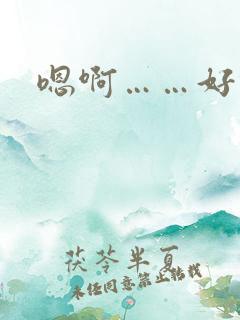 嗯啊……好
茯苓半夏
未经同意禁止转载